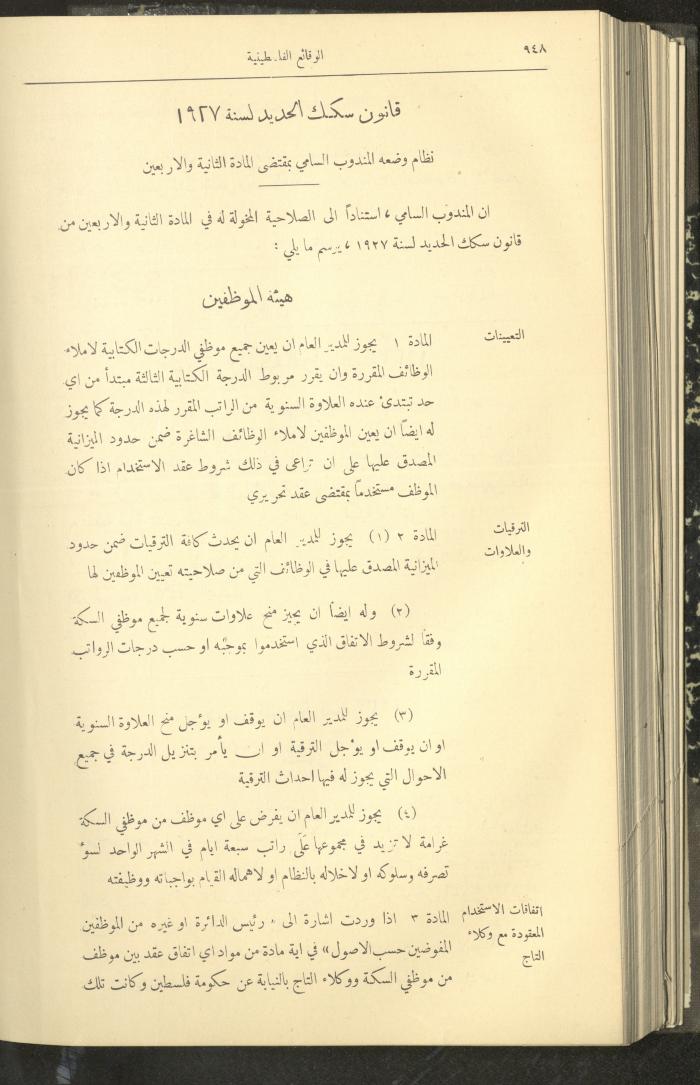 ٩٤٨
الوقائع الفلسطينية
قانون سكك الحديد لسنة ١٩٢٧
نظام وضعه المندوب السامي بمقتضى المادة الثانية والاربعين
ان المندوب السامي ، استناداً الى الصلاحية المخولة له في المادة الثانية والاربعين من
قانون سكك الحديد لسنة ١٩٢٧ ، يرسم ما يلي :
هيئة الموظفين
التعيينات
المادة ١ يجوز للمدير العام ان يعين جميع موظفي الدرجات الكتابية لاملاء
الوظائف المقررة وان يقرر مربوط الدرجة الكتابية الثالثة مبتدأ من اي
حد تبتدئ عنده العلاوة السنوية من الراتب المقرر لهذه الدرجة كما يجوز
له ايضاً ان يعين الموظفين لاملاء الوظائف الشاغرة ضمن حدود الميزانية
المصدق عليها على ان تراعى في ذلك شروط عقد الاستخدام اذا كان
الموظف مستخدماً بمقتضى عقد تحريري
الترقيات
والعلاوات
المادة ٢ (١) يجوز للمدير العام ان يحدث كافة الترقيات ضمن حدود
الميزانية المصدق عليها في الوظائف التي من صلاحيته تعيين الموظفين لها
(٢) وله ايضاً ان يجيز منح علاوات سنوية لجميع موظفي السكة
وفقاً لشروط الاتفاق الذي استخدموا بموجبه او حسب درجات الرواتب
المقررة
(٣) يجوز للمدير العام ان يوقف او يؤجل منح العلاوة السنوية
او ان يوقف او يؤجل الترقية او ان يأمر بتنزيل الدرجة في جميع
الاحوال التي يجوز له فيها احداث الترقية
(٤) يجوز للمدير العام ان يفرض على اي موظف من موظفي السكة
غرامة لا تزيد في مجموعها على راتب سبعة ايام في الشهر الواحد لسوء
تصرفه وسلوكه او لاخلاله بالنظام او لاهماله القيام بواجباته ووظيفته
اتفاقات الاستخدام
المعقودة مع وكلاء
التاج
المادة ٣ اذا وردت اشارة الى « رئيس الدائرة او غيره من الموظفين
المفوضين حسب الاصول » في اية مادة من مواد اي اتفاق عقد بين موظف
من موظفي السكة ووكلاء التاج بالنيابة عن حكومة فلسطين وكانت تلك